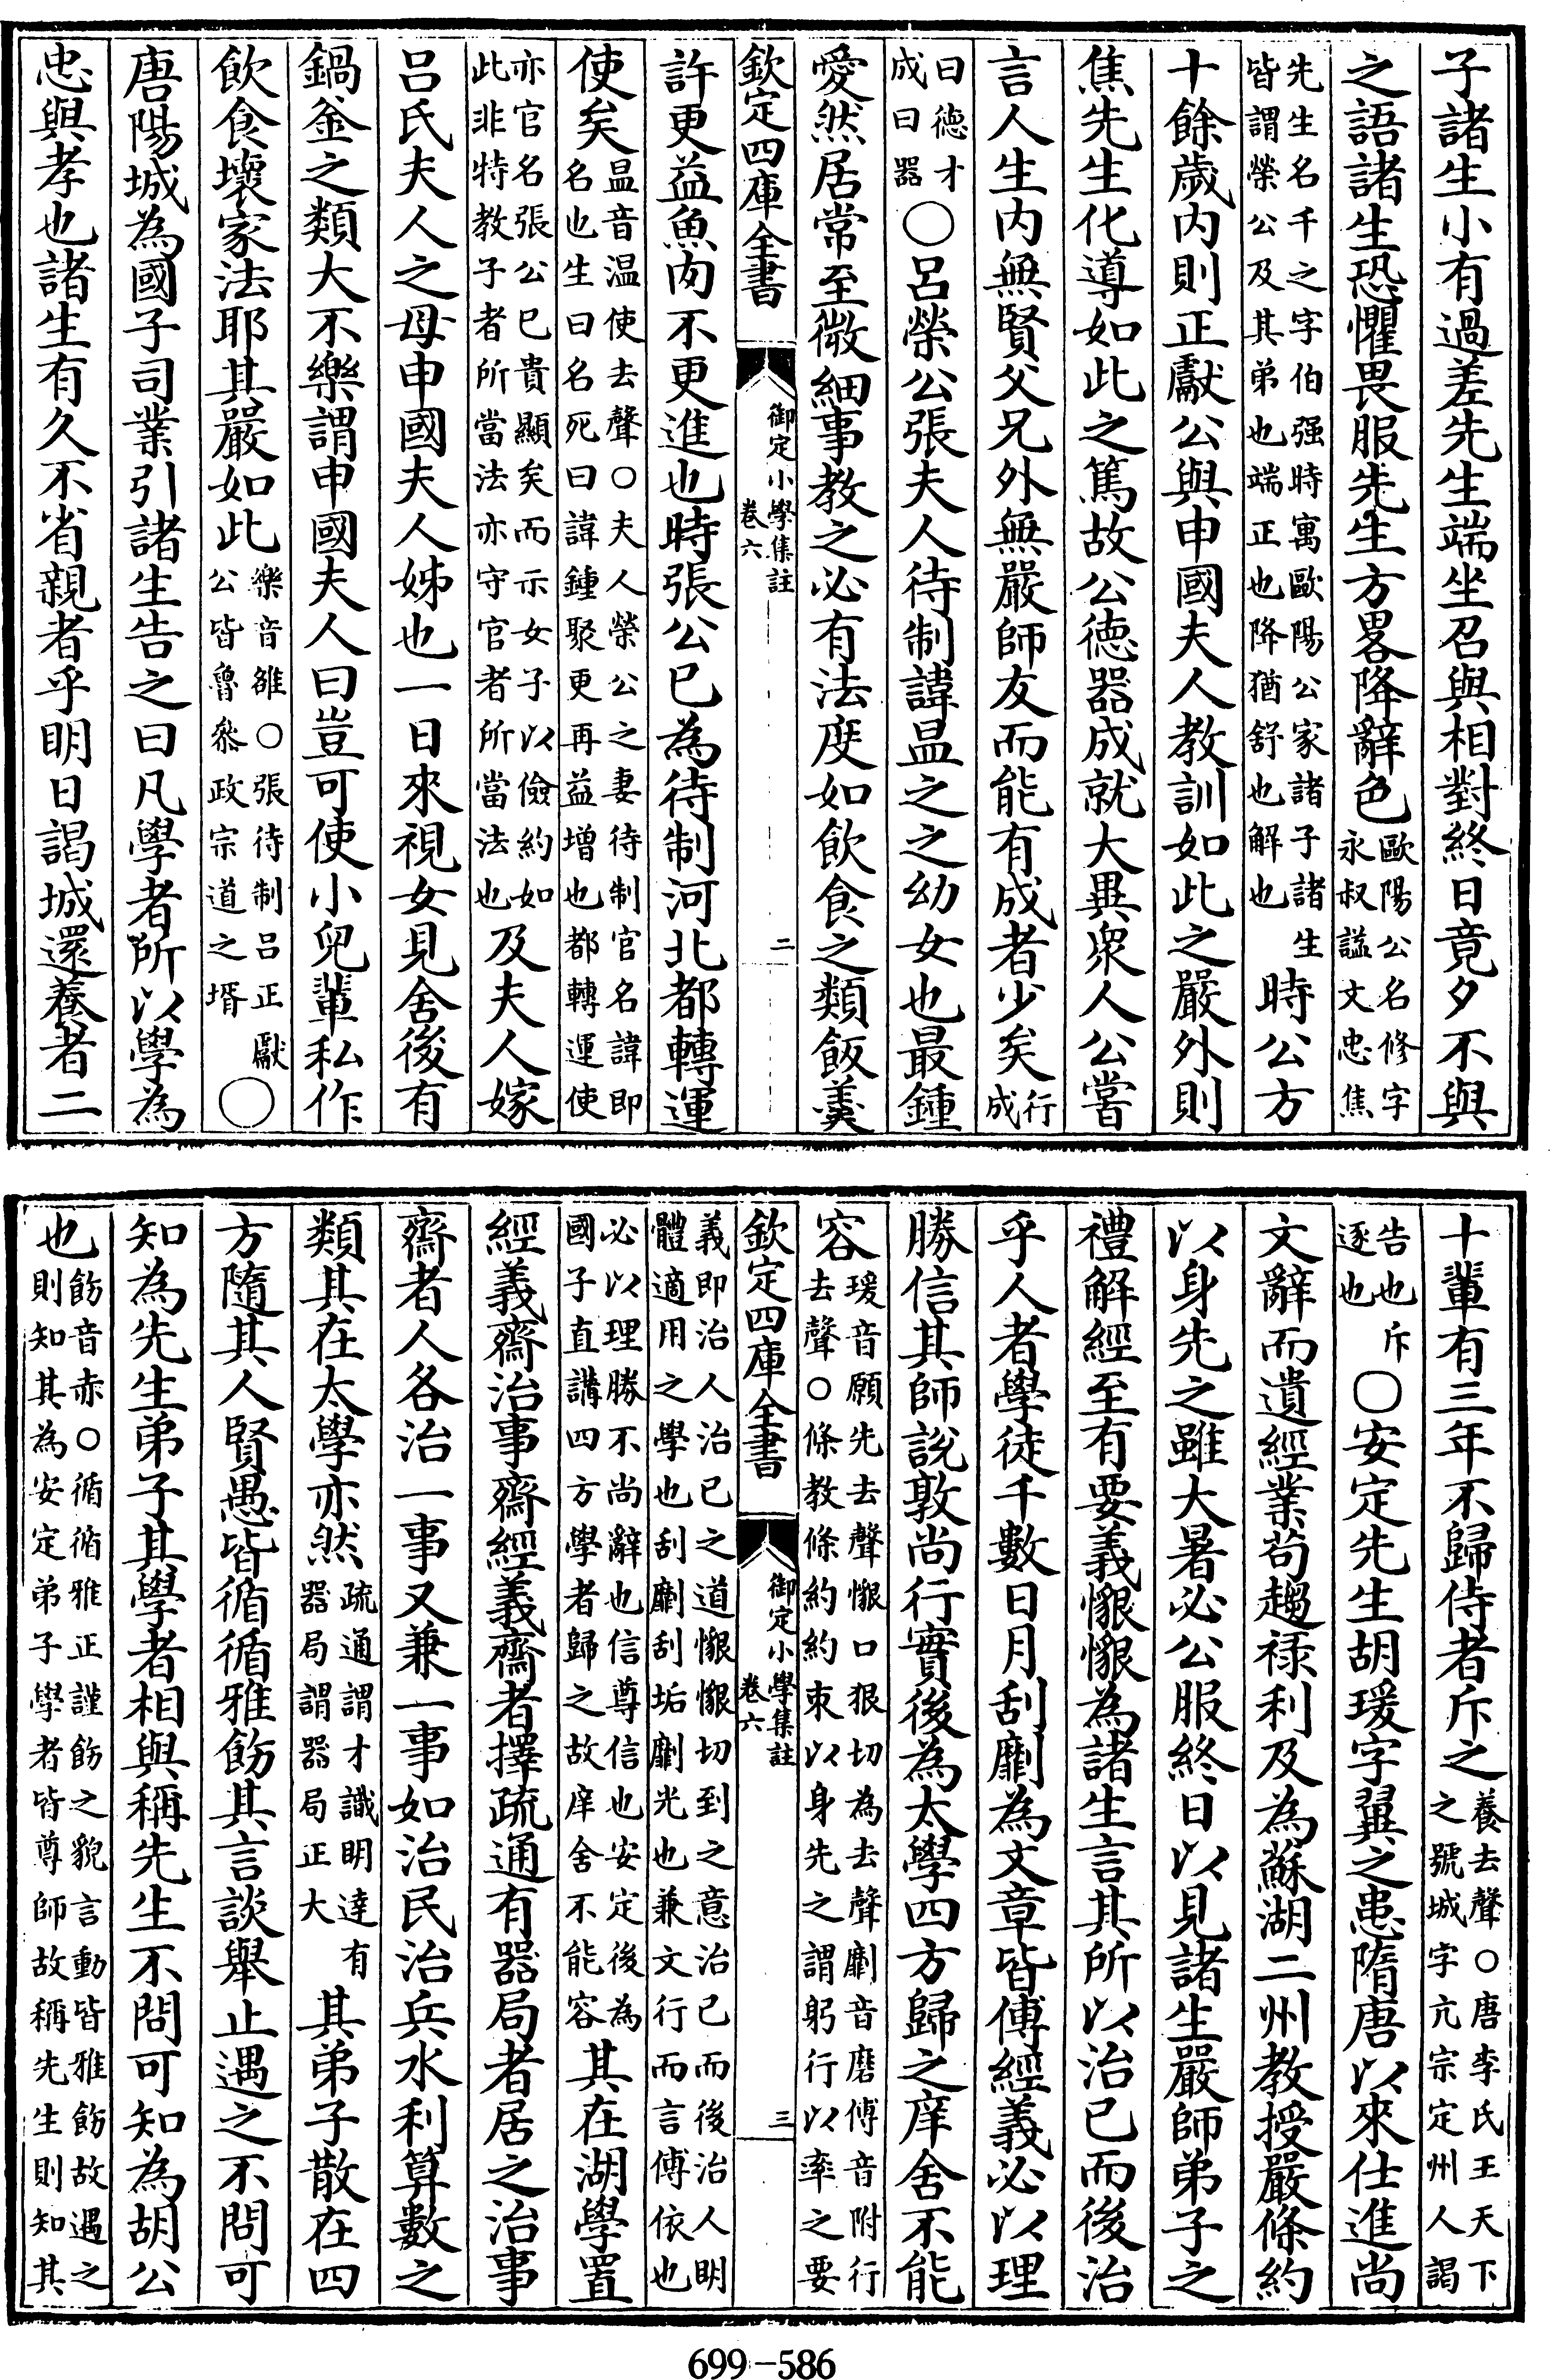 子諸生小有過差先生端坐召與相對終日竟夕不與
之語諸生恐懼畏服先生方畧降辭色歐陽公名修字永叔諡文忠焦
先生名千之字伯强時寓歐陽公家諸子諸生皆謂榮公及其弟也端正也降猶舒也解也時公方
十餘歲内則正獻公與申國夫人教訓如此之嚴外則
焦先生化導如此之篤故公德器成就大異衆人公嘗
言人生内無賢父兄外無嚴師友而能有成者少矣行成
曰德才成曰器○呂榮公張夫人待制諱昷之之幼女也最鍾
愛然居常至微細事教之必有法度如飲食之類飯羹
欽定四庫全書 御定小學集註 卷六 二
許更益魚肉不更進也時張公已為待制河北都轉運
使矣昷音温使去聲○夫人榮公之妻待制官名諱即名也生曰名死曰諱鍾聚更再益增也都轉運使
亦官名張公已貴顯矣而示女子以儉約如此非特教子者所當法亦守官者所當法也及夫人嫁
呂氏夫人之母申國夫人姊也一日來視女見舍後有
鍋釜之類大不樂謂申國夫人曰豈可使小兒輩私作
飲食壞家法耶其嚴如此樂音雒○張待制呂正獻公皆魯叅政宗道之壻○
唐陽城為國子司業引諸生告之曰凡學者所以學為
忠與孝也諸生有久不省親者乎明日謁城還養者二
十輩有三年不歸侍者斥之養去聲○唐李氏王天下之號城字亢宗定州人謁
告也斥逐也○安定先生胡瑗字翼之患隋唐以來仕進尚
文辭而遺經業苟趨祿利及為蘇湖二州教授嚴條約
以身先之雖大暑必公服終日以見諸生嚴師弟子之
禮解經至有要義懇懇為諸生言其所以治已而後治
乎人者學徒千數日月刮劘為文章皆傅經義必以理
勝信其師說敦尚行實後為太學四方歸之庠舍不能
容瑗音願先去聲懇口狠切為去聲劘音磨傅音附行去聲○條教條約約束以身先之謂躬行以率之要
欽定四庫全書 御定小學集註 卷六 三
義即治人治已之道懇懇切到之意治已而後治人明體適用之學也刮劘刮垢劘光也兼文行而言傅依也
必以理勝不尚辭也信尊信也安定後為國子直講四方學者歸之故庠舍不能容其在湖學置
經義齋治事齋經義齋者擇疏通有器局者居之治事
齋者人各治一事又兼一事如治民治兵水利算數之
類其在太學亦然疏通謂才識明達有器局謂器局正大其弟子散在四
方隨其人賢愚皆循循雅飭其言談舉止遇之不問可
知為先生弟子其學者相與稱先生不問可知為胡公
也飭音赤○循循雅正謹飭之貌言動皆雅飭故遇之則知其為安定弟子學者皆尊師故稱先生則知其
699-586